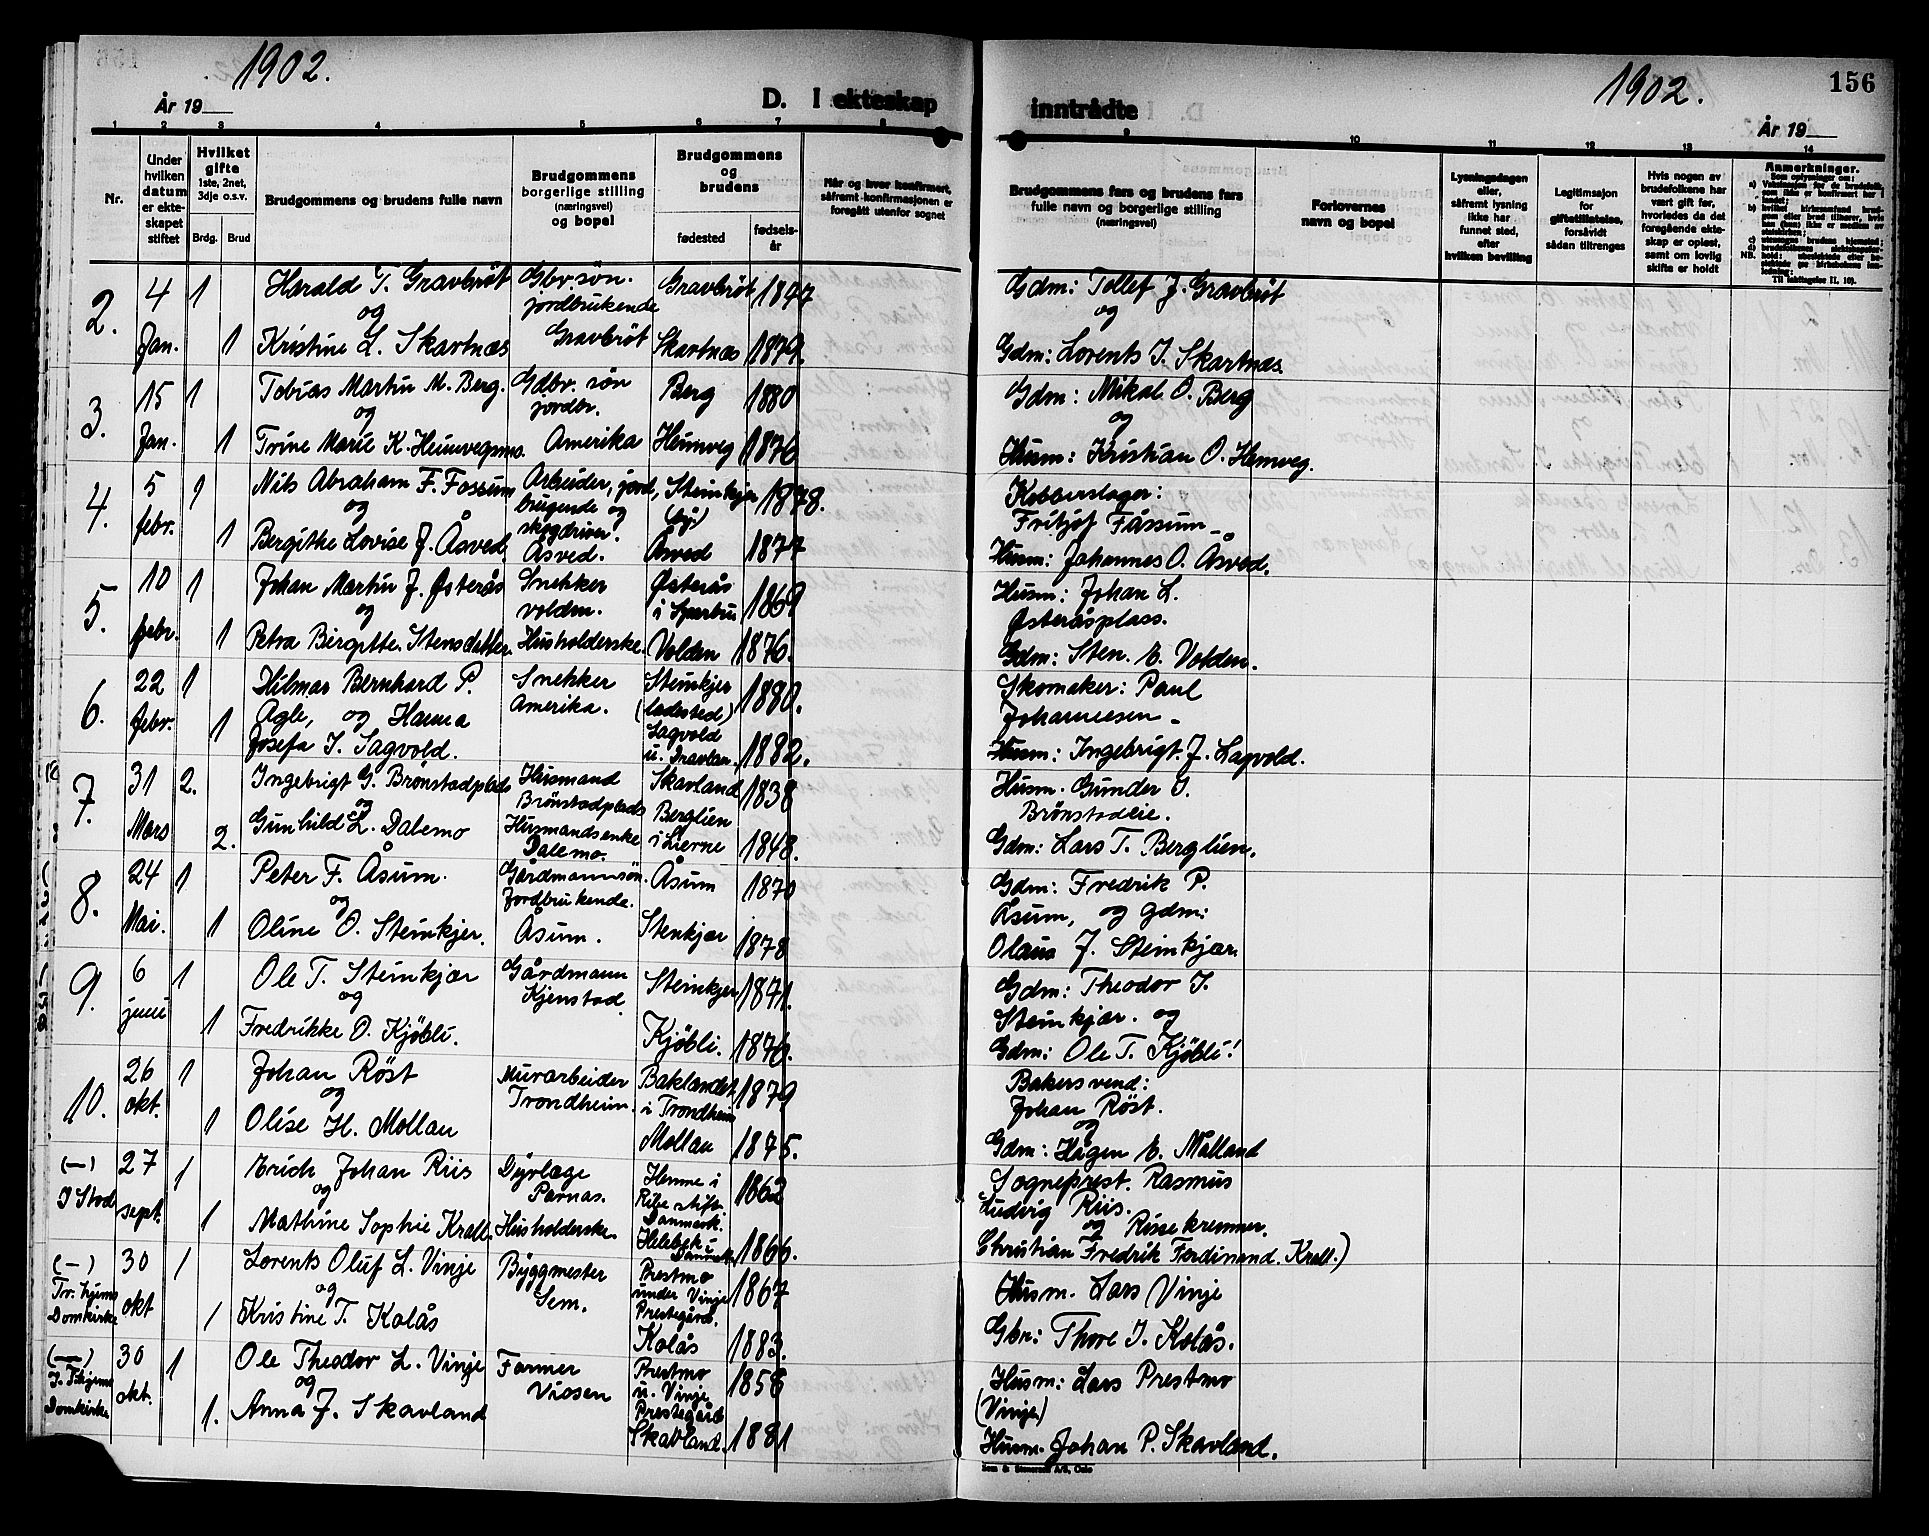 1902.
År 19
D. I ekteskap
1 2 3 4 5 6 7 8
Nr.
Under hvilken datum er ekteskapet stiftet
Hvilket gifte 1ste, 2net, 3dje o.s.v.
Brdg. Brud
Brudgommens og brudens fulle navn
Brudgommens borgerlige stilling (næringsvei) og bopel
Brudgommens og brudens
fødested fødselsår
Når og hvor konfirmert, såfremt konfirmasjonen er foregått utenfor sognet
2. 4 1 Harald T. Gravbröt Gbr. søn. Gravbröt 1847
og jordbrukende
Jan. 1 Kristine L. Skartnæs Gravbröt Skartnæs 1879.
3. 15 1 Tobias Martin M. Berg. Gdbr. søn Berg 1880
og jordbr.
Jan. 1 Trine Marie K. Heimvegsms. Amerika Heimveg 1876
4. 5 1 Nils Abraham F. Fossum Arbeider, jord, Steinkjer 1878.
og brugende og (by)
febr. skogdriver.
1 Bergithe Lovise J. Åsved. Åsved. Åsved 1877
5. 10 1 Johan Martin J. Østerås Snekker Østerås 1868
og voldm. i Sparbu
febr. 1 Petra Birgitte Stensdatter. Husholderske. Volden 1876.
6. 22 1 Hilmar Bernhard P. Snekker Steinkjer 1880.
febr. 1 Agle, og Hanna Amerika. (ladested)
Josefa I. Sagvold. Sagvold 1882.
7. 31 2. Ingebrigt G. Brönstadplads Husmand Skavland 1838
og Brönstadplads
Mars 2. Gunhild L. Dalemo Husmandsenke Berglien
Dalemo. i Lierne 1848.
8. 24 1 Peter F. Åsum. Gårdmannssön. Åsum 1870
og Jordbrukende.
Mai. 1 Oline O. Steinkjer. Åsum. Stenkjær 1878
9. 6 1 Ole T. Steinkjær Gårdmann Steinkjer 1871.
og Kjenstad
juni 1 Fredrikke O. Kjöbli. Kjöbli. 1876.
10. 26 1 Johan Röst Murarbeider Baklandet 1879
og Trondheim. i Trondheim
okt. 1 Olise H. Mollan Mollan 1875.
(—) 27 1 Erich Johan Riis Dyrlæge Hemme i 1862
I Stod og Parnas. Ribe stift.
sept. Danmark.
1 Mathine Sophie Krall. Husholderske. 1866.
(—) 30 1 Lorents Oluf L. Vinje Byggmester Prestmo 1867
Tr.hjems og Sem. under Vinje
Domkirke okt Prestegård.
1 Kristine T. Kolås Kolås 1883.
(—) 30 1 Ole Theodor L. Vinje Farmer Prestmo 1858
og Vissen u. Vinje
Domkirke okt. Prestegård
1. Anna J. Skavland Skavland. 1881
1902.
156
inntrådte
År 19
9 10 11 12 13 14
Brudgommens fars og brudens fars fulle navn og borgerlige stilling (næringsvei)
Forlovernes navn og bopel
Lysningsdagen eller, såfremt lysning ikke har funnet sted, efter hvilken bevilling
Legitimasjon for giftetillatelse, forsåvidt sådan tiltrenges
Hvis nogen av brudefolkene har vært gift før, hvorledes da det foregående ekteskap er opløst, samt om lovlig skifte er holdt
Anmerkninger.
Gdm: Tollef J. Gravbröt
og
Gdm: Lorents I. Skartnæs.
Gdm: Mikal O. Berg
og
Husm: Kristian O. Hemveg.
Kobberslager:
Fritjof Fossum
Husm: Johannes O. Åsved.
Husm: Johan L.
Østeråsplass.
Gdm: Sten. E. Volden.
Skomaker: Paul
Johannesen
Husm: Ingebrigt J. Sagvold.
Husm. Gunder I.
Brönstadeie.
Gdm: Lars T. Berglien.
Gdm: Fredrik P.
Åsum, og gdm:
Olaus J. Steinkjær
Gdm: Theodor I.
Steinkjær. og
Gdm: Ole T. Kjöbli!
Bakersvend:
Johan Röst.
og
Gdm: Hågen E. Målland
Sogneprest. Rasmus
Ludvig Riis.
og
Christian Fredrik Ferdinand. Krall.)
Husm. Lars Vinje
Gbr: Thore I. Kolås.
Husm: Lars Prestmo
(Vinje)
Husm. Johan P. Skavland.